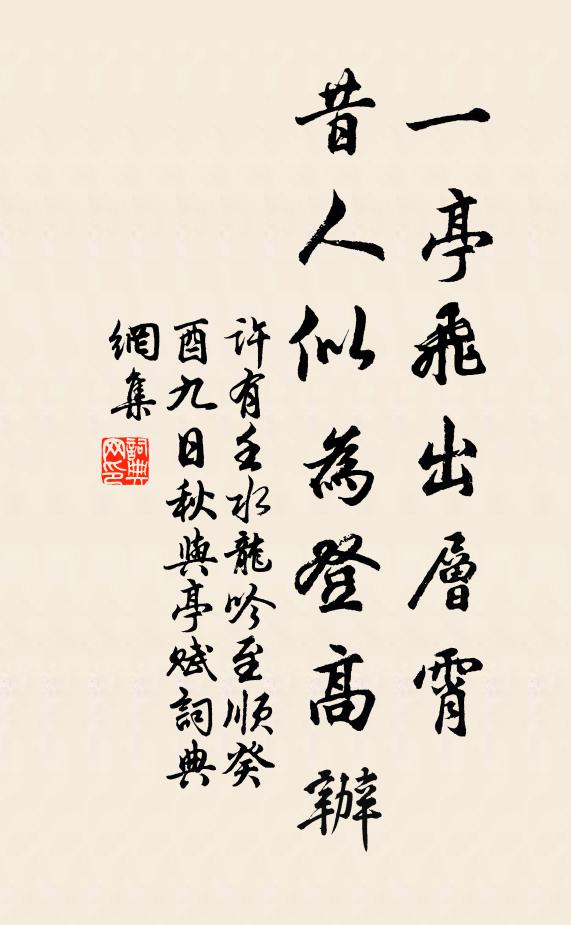 一亭飛出層霄
昔人似為登高辦
許有壬水龍吟至順癸
酉九日秋興亭賦詞典
網集
詞典網印